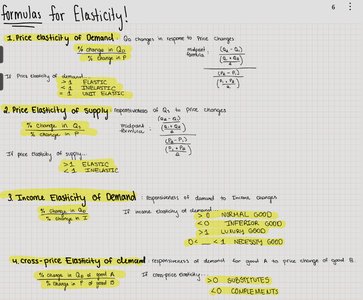 formulas for Elasticity!
6
1. Price elasticity of Demand: QD changes in response to Price changes
% change in QD
% change in P
midpoint formula:
(Q2 - Q1)
(Q1 + Q2
2)
(P2 - P1)
(P1 + P2
2)
If Price elasticity of demand...
> 1 ELASTIC
< 1 INELASTIC
= 1 UNIT ELASTIC
2. Price Elasticity of Supply: responsiveness of Qs to price changes
% change in Qs
% change in P
midpoint formula:
(Q2 - Q1)
(Q1 + Q2
2)
(P2 - P1)
(P1 + P2
2)
If price elasticity of supply...
> 1 ELASTIC
< 1 INELASTIC
3. Income Elasticity of Demand: responsiveness of demand to Income changes
% change in QD
% change in I
If income elasticity of demand...
> 0 NORMAL GOOD
< 0 INFERIOR GOOD
> 1 LUXURY GOOD
0 < __ < 1 NECESSITY GOOD
4. cross-price Elasticity of demand: responsiveness of demand for good A to price change of good B
% change in QD of good A
% change in P of good B
If cross-price elasticity...
> 0 SUBSTITUTES
< 0 COMPLEMENTS